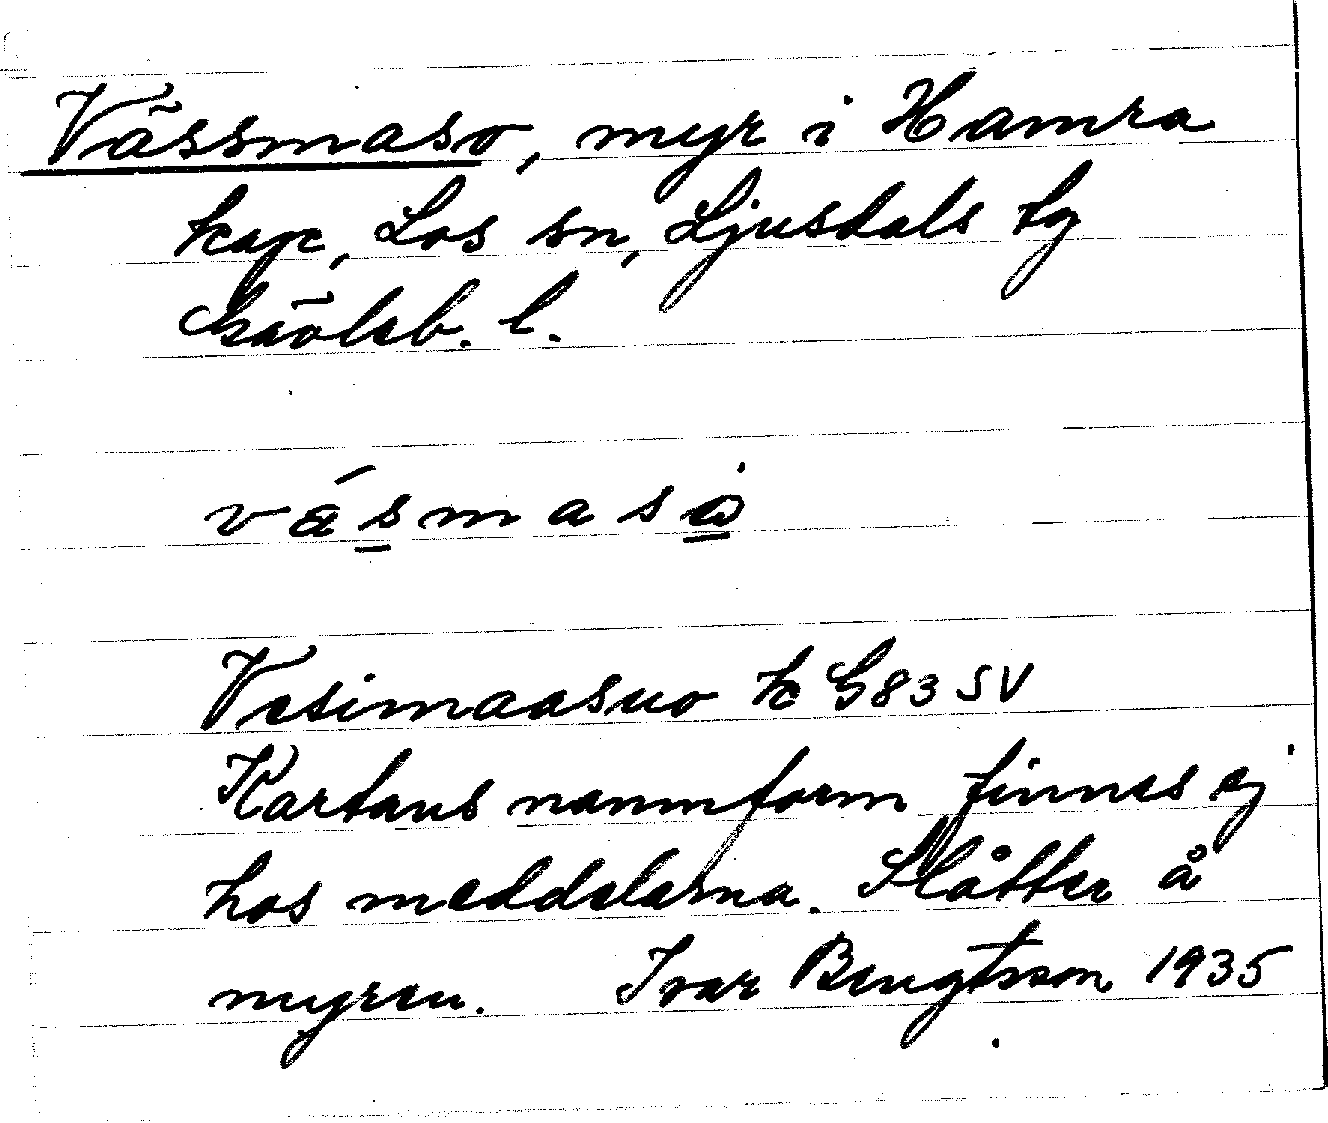 Vässmaso, myr i Hamra
kap, Los sn, Ljusdals tg
Gävleb. l.
väsmaså
Vesimaasuo k G83 SV
Kartans namnform finnes ej
hos meddelarna. Slåtter å
myren. Ivar Bengtsson 1935